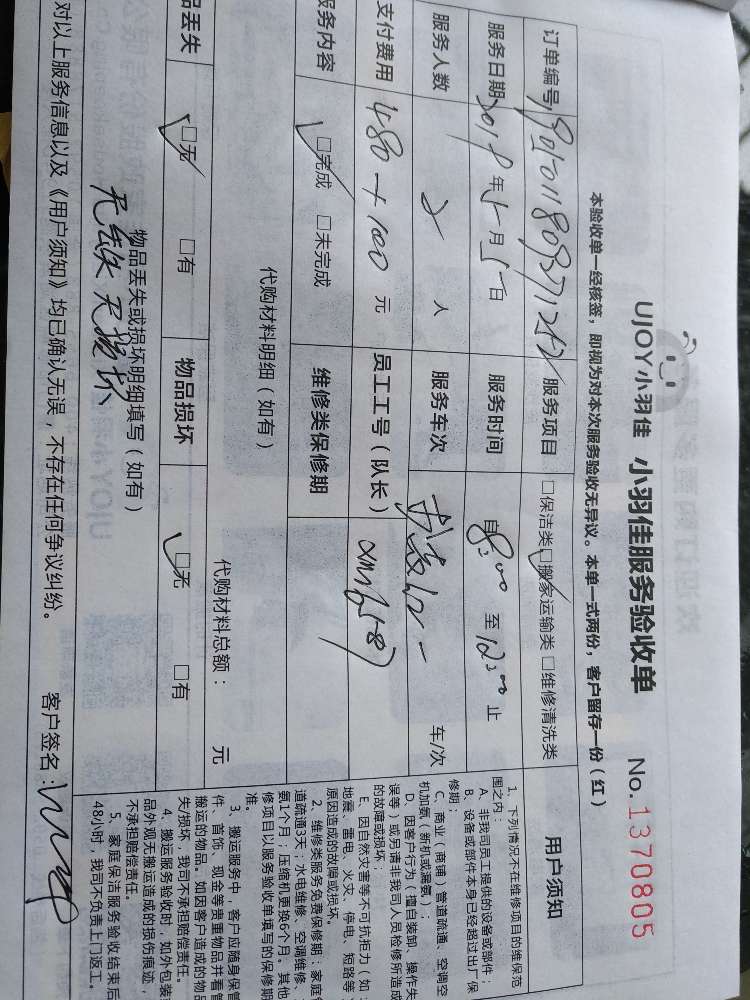 UJOY小羽佳 小羽佳服务验收单 No.1370805
本验收单一经核签，即视为对本次服务验收无异议。本单一式两份，客户留存一份（红）
订单编号 服务项目 □保洁类 □搬家运输类 □维修清洗类
服务日期 2019年5月5日 服务时间 自8:00至12:00止
服务人数 2 人 服务车次 车/次
支付费用 480+100 元 员工工号（队长）
服务内容 □完成 □未完成 维修类保修期
代购材料明细（如有） 代购材料总额： 元
品丢失 □无 □有 物品损坏 □无 □有
物品丢失或损坏明细填写（如有）
无丢失 无损坏
对以上服务信息以及《用户须知》均已确认无误，不存在任何争议纠纷。 客户签名：
用户须知
1、下列情况不在维修项目的维保范
围之内：
A、非我司员工提供的设备或部件；
B、设备或部件本身已经超过出厂保
修期；
C、商业（商铺）管道疏通、空调空
机加氨（新机或漏氨）；
D、因客户行为（擅自装卸、操作失
误等）或另请非我司人员检修所造成
的故障或损坏；
E、因自然灾害等不可抗拒力（如：
地震、雷电、火灾、停电、短路等
原因造成的故障或损坏。
2、维修类服务免费保修期：家庭
道疏通3天；水电维修、空调维修、
氨1个月；压缩机更换6个月。其他
修项目以服务验收单填写的保修期
准。
3、搬运服务中，客户应随身保管
件、首饰、现金等贵重物品并看管
搬运的物品。如因客户造成的物品
失/损坏，我司不承担赔偿责任。
4、搬运服务验收时，如外包装
品外观无搬运造成的损伤痕迹，
不承担赔偿责任。
5、家庭保洁服务验收结束后
48小时，我司不负责上门返工。